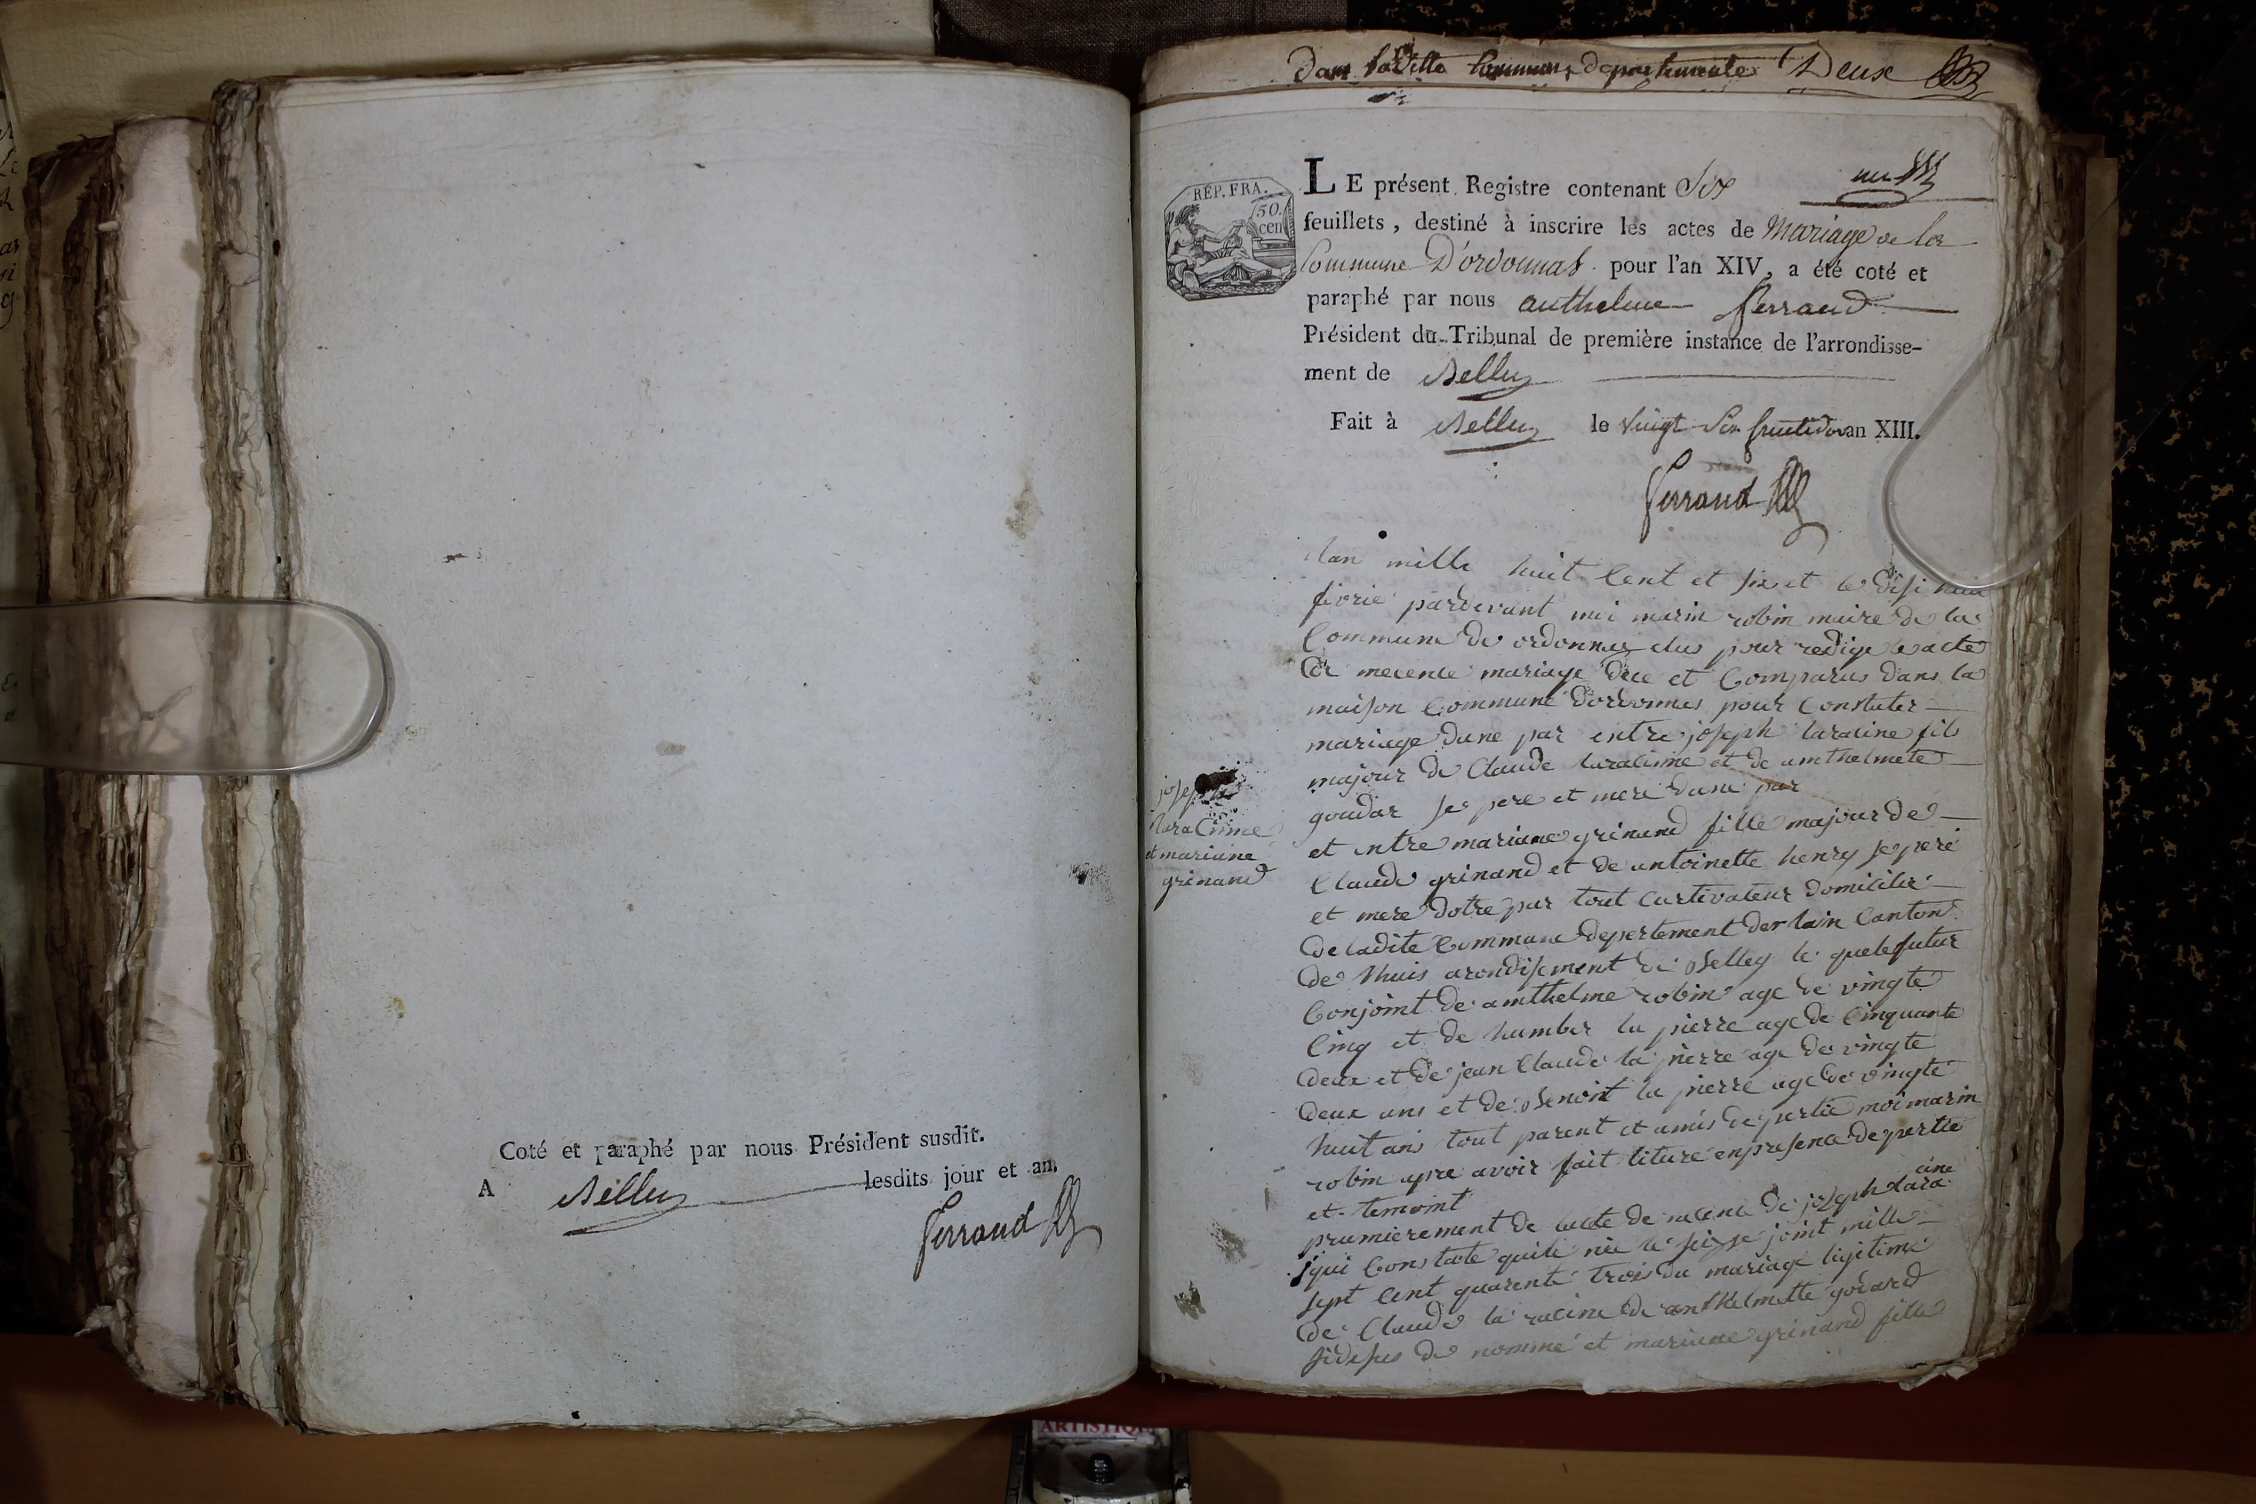 Coté et paraphé par nous Président susdit.
A Belley lesdits jour et an.
Ferrand
Dans ladite Commune, departemente Deux
REP. FRA.
50.
cen
un
LE présent Registre contenant Six
feuillets, destiné à inscrire les actes de Mariage de la
Commune D'ordonnas pour l'an XIV, a été coté et
paraphé par nous anthelme ferrand
Président du Tribunal de première instance de l'arrondisse-
ment de Belley
Fait à Belley le vingt Six fructidor an XIII.
Ferrand
joseph
laracime
et mariane
grinand
lan mille huit Cent et six et le disi huit
fivrie pardevant moi marin robin maire de la
Commune de ordonnas elus pour redige le acte
de mariage dece et Comparus dans la
maison Commune dordonnas pour Constater
mariage dune par entre joseph laracine fils
majour de Claude laracime et de amthelmete
goudar se pere et mere dune par
et entre mariane grinand fille majour de
Claude grinand et de antoinette henry se pere
et mere dotre par tout Curtivateur domicilie
de ladite Commune depertement der lain Canton
de lhuis arondisement de Belley le quele futur
Conjoint de amthelme robin age de vingte
Cinq et de humber la pierre age de Cinquante
deux et de jean Claude la pierre age de vingte
deux ans et de Benoit la pierre age de vingte
huit ans tout parent et amis de pertie moi marin
robin apre avoir fait liture enpresence de pertie
et temoint
prumierement de lacte de joseph lara
cine
qui Constate quile nie le seize joint mille
sept Cent quarente trois du mariage legitime
de Claude la racine de anthelmette godard
sidesus de nomme et mariane grinand fille
ARTISTIQU